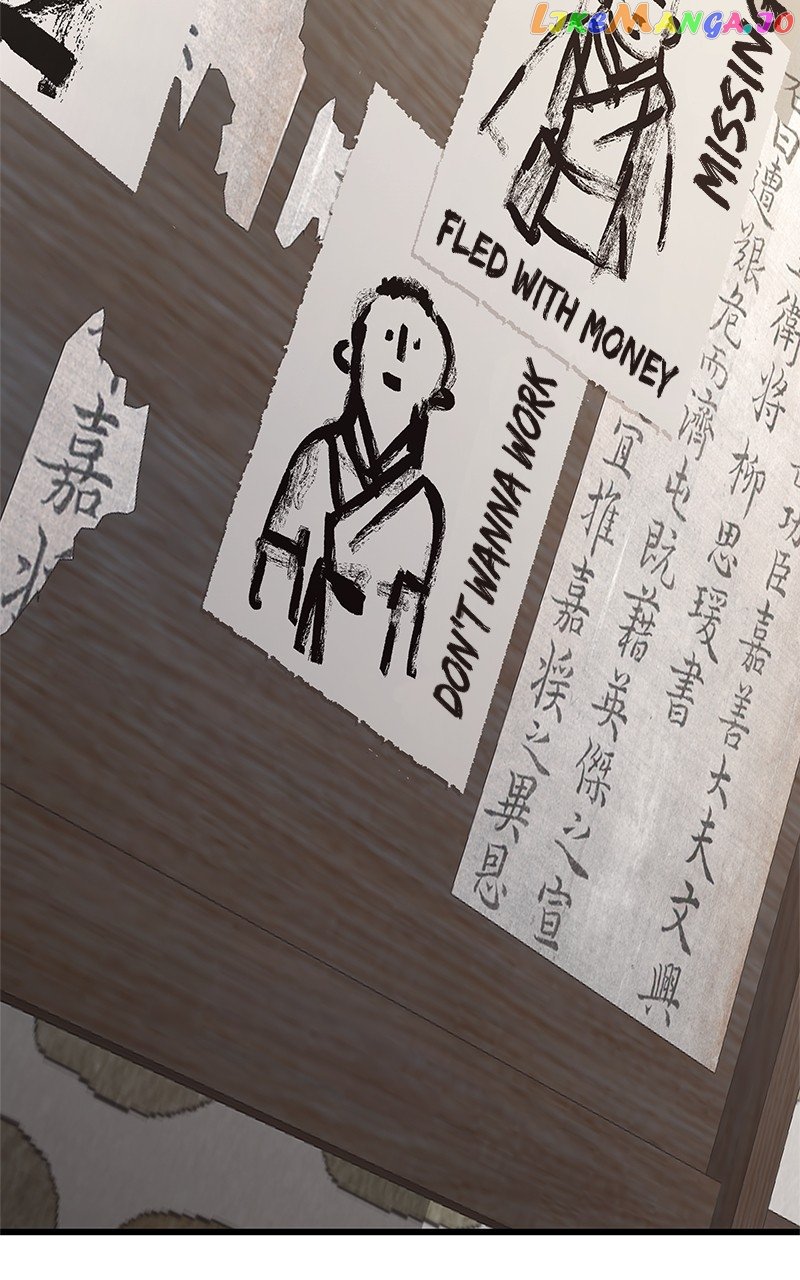 LIKEMANGA.IO
MISSING
FLED WITH MONEY
DON'T WANNA WORK
嘉
將
日遭艱危而濟屯既藉英傑之宣
宜推嘉奨之異恩
衛將柳思瑗書
功臣嘉善大夫文興